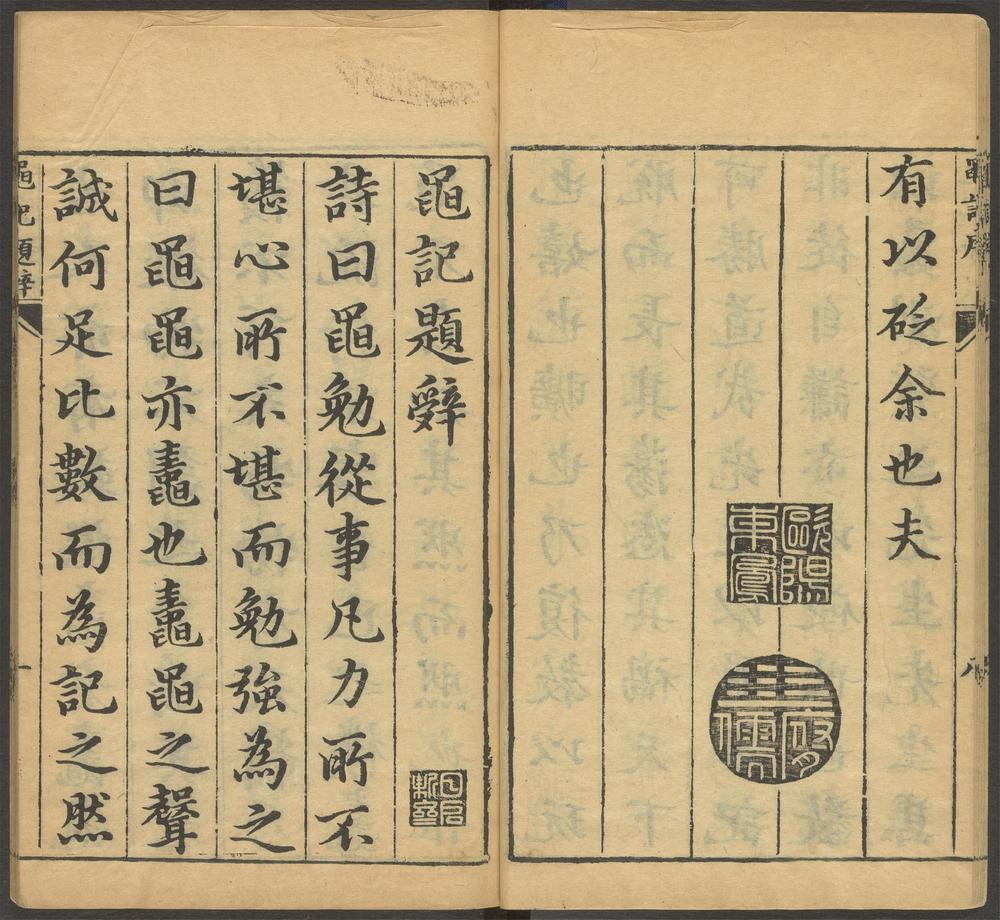 黽記序
八
有以砭余也夫
歐陽東鳳
黽記題辭
詩曰黽勉從事凡力所不
堪心所不堪而勉強為之
曰黽黽亦鼃也鼃黽之聲
誠何足比數而為記之然
黽記題辭
一